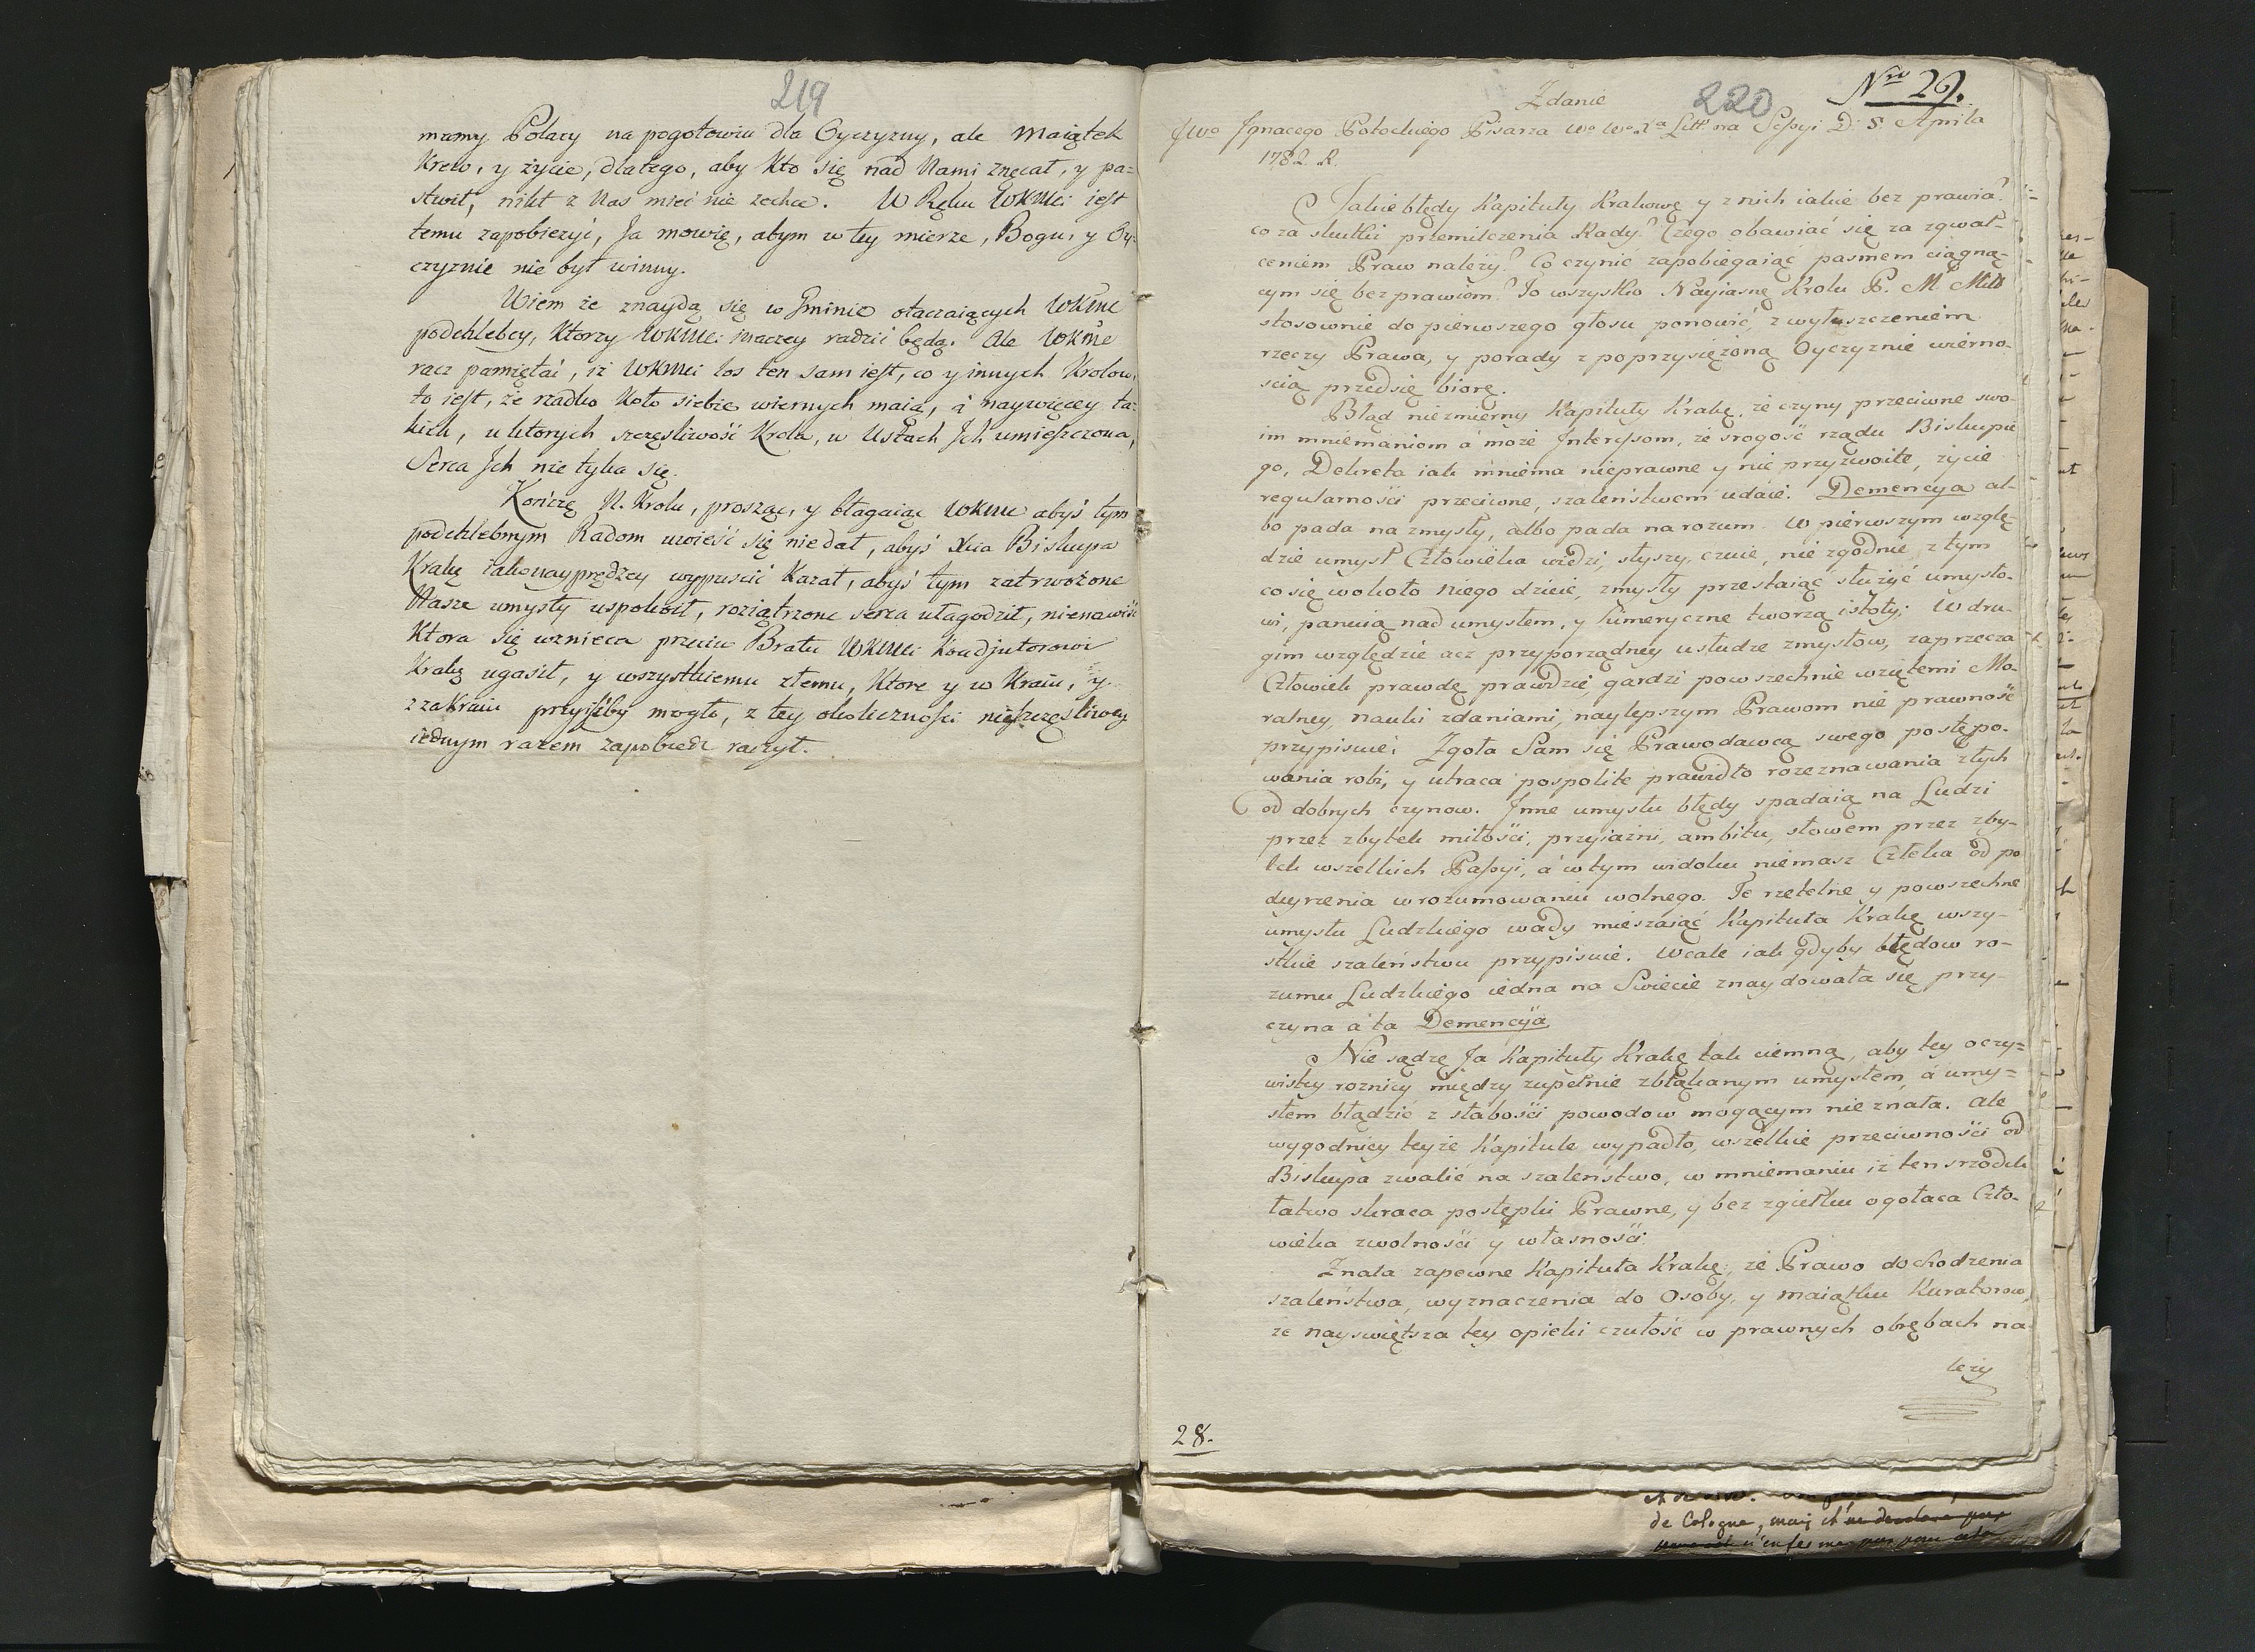 219
mamy Polacy na pogotowiu dla Oyczyzny, ale Maiątek
Krew, y życie, dlatego, aby Kto się nad Nami znęcał, y pa=
stwił, nikt z Nas mieć nie zechce. W Ręku WKMci iest
temu zapobieżyć, Ja mowię, abym w tey mierze, Bogu, y Oy-
czyznie nie był winny.
Wiem że znaydą się w Gminie otaczaiących WKMć
podchlebcy, Ktorzy WKMci inaczey radzić będą. Ale WKMć
racz pamiętać, iż WKMci los ten sam iest, co y innych Krolow,
to iest, że rzadko Koło siebie wiernych maią, a naywięcey ta-
kich, u ktorych szczęsliwość Krola, w Ustach Jch umieszczona,
Serca Jch nie tyka się.
Kończę N. Krolu, prosząc, y błagaiąc WKMć abyś tym
podchlebnym Radom uwieść się niedał, abyś Xcia Biskupa
Krakg iako nayprędzey wypuscić Kazał, abyś tym zatrwożone
Nasze umysły uspokoił, roziątrzone serca ułagodził, nienawiść
Ktora się wznieca przeciw Bratu WKMci Koadjutorowi
Krakg ugasił, y wszystkiemu złemu, Ktore y w Kraiu, y
z zakraiu przyiśćby mogło, z tey okoliczności nieszczęsliwey
iednym razem zapobiedz raczył.
220
Nro 29.
Zdanie
JWo Jgnacego Potockiego Pisarza Wo Wo Xa Litt na Sessyi D: 5 Aprila
1782 R.
Jakie błędy Kapituły Krakowg y z nich iakie bez prawia?
co za skutki przemilczenia Rady? Czego obawiać się za zgwał-
ceniem Praw należy? Co czynić zapobiegaiąc pasmem ciągną-
cym się bezprawiom? To wszystko Nayiasng Krolu P. M. Mił
stosownie do pierwszego głosu ponowić, z wyłuszczeniem
rzeczy Prawa, y porady z poprzysiężoną Oyczyznie wierno-
scią przedsię biorę.
Błąd niezmierny Kapituły Krakg. że czyny przeciwne swo-
im mniemaniom a może Jnteryssom, że srogość rządu Biskupie
go, Dekreta iak mniema nieprawne y nie przyzwoite, życie
regularności przeciwne, szaleństwem udaie. Demencya al-
bo pada na zmysły, albo pada na rozum. W pierwszym wzglę-
dzie umysł Człowieka widzi, słyszy, czuie, nie zgodnie z tym
co się wokoło niego dzieie, zmysły przestaiąc służyć umysło-
wi, panuią nad umysłem, y kimeryczne tworzą istoty; W dru-
gim względzie acz przyporządney usłudze zmysłow, zaprzecza
Człowiek prawdę prawdzie, gardzi powszechnie wziętemi Mo-
ralney nauki zdaniami, naylepszym Prawom nie prawność
przypisuie; Zgoła Sam się Prawodawcą swego postępo-
wania robi, y utraca pospolite prawidło rozeznawania złych
od dobrych czynow. Jnne umysłu błędy spadaią na Ludzi
przez zbytek miłości, przyiazni, ambitu, słowem przez zby-
tek wszelkich Passyi, a w tym widoku niemasz Człeka od po
deyrzenia w rozumowaniu wolnego. Te rzetelne y powszechne
umysłu Ludzkiego wady mieszaiąc Kapituła Krakg wszy-
stkie szaleństwu przypisuie. Wcale iak gdyby błędow ro-
zumu Ludzkiego iedna na Swiecie znaydowała się przy-
czyna a ta Demencya.
Nie sądzę Ja Kapituły Krakg tak ciemną, aby tey oczy=
wistey roznicy między zupełnie zbłąkanym umysłem, a umy=
słem błądzić z słabości powodow mogącym nie znała. Ale
wygodniey teyże Kapitule wypadło, wszelkie przeciwności od
Biskupa zwalić na szaleństwo, w mniemaniu iż ten srzodek
łatwo skraca postępki Prawne, y bez zgiełku ogołaca Czło-
wieka z wolności y własności.
Znała zapewne Kapituła Krakg, że Prawo dochodzenia
szaleństwa, wyznaczenia do Osoby, y maiątku Kuratorow,
że nayswiętsza tey opieki czułość w prawnych obrębach na-
leży
28.
de Cologne, mais